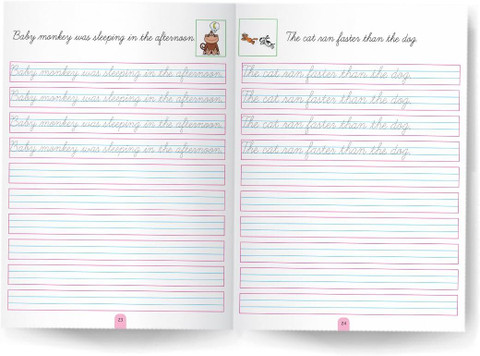 Baby monkey was sleeping in the afternoon.
Baby monkey was sleeping in the afternoon.
Baby monkey was sleeping in the afternoon.
Baby monkey was sleeping in the afternoon.
Baby monkey was sleeping in the afternoon.
23
The cat ran faster than the dog.
The cat ran faster than the dog.
The cat ran faster than the dog.
The cat ran faster than the dog.
The cat ran faster than the dog.